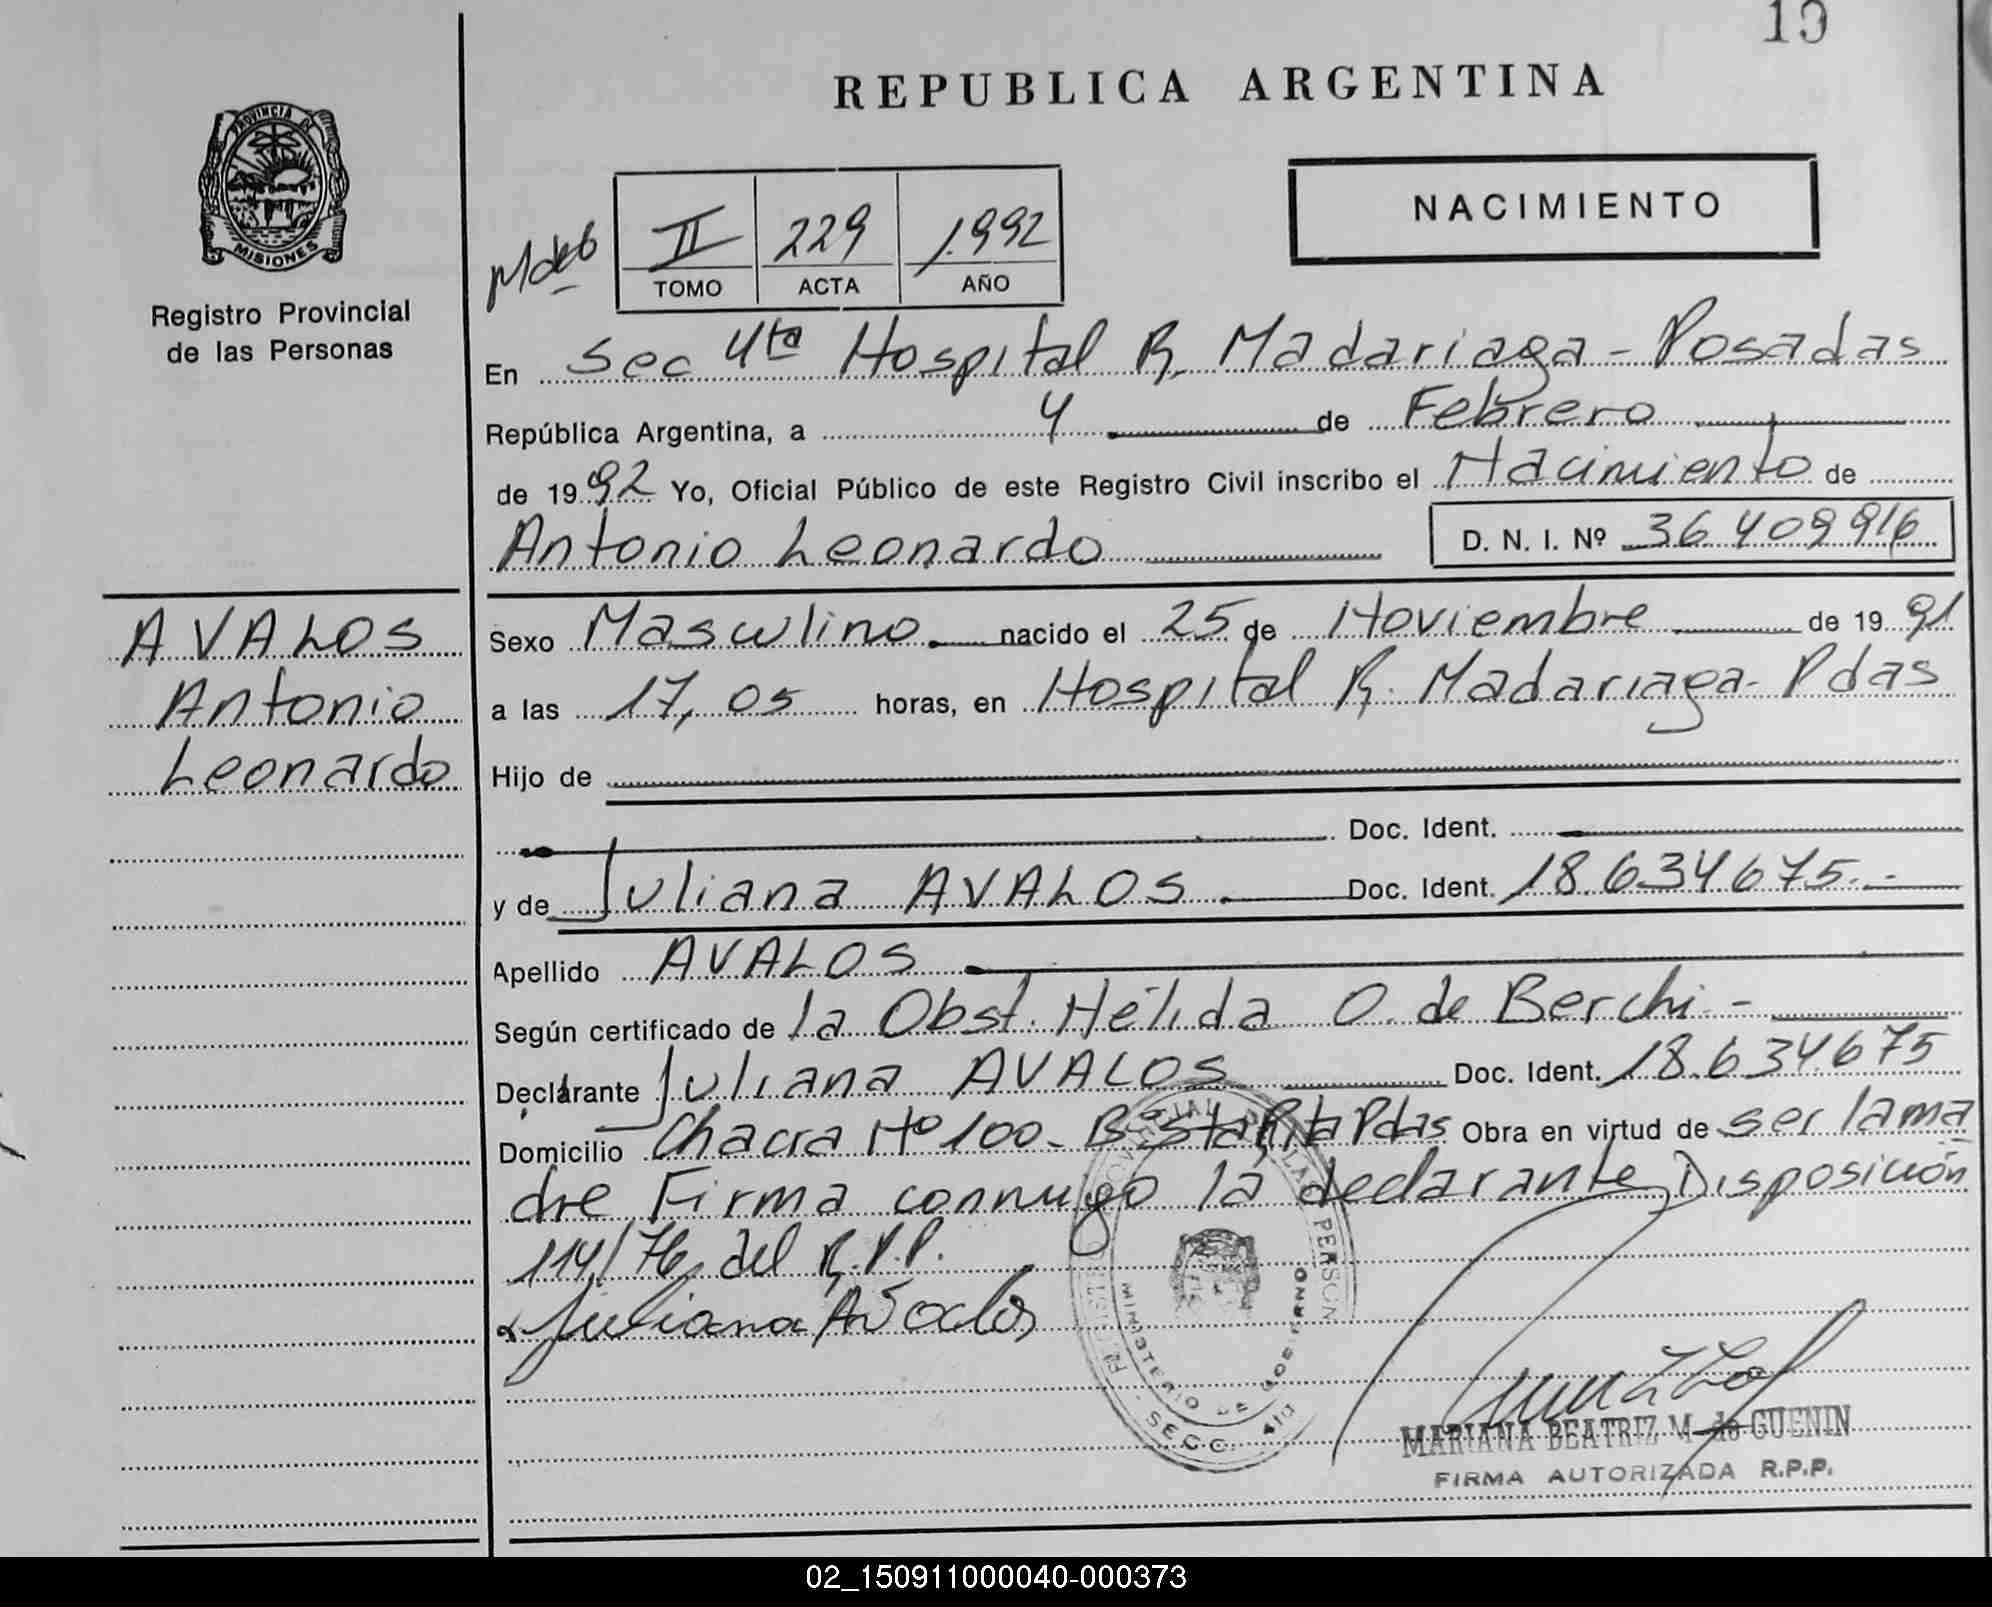 19
REPUBLICA ARGENTINA
PROVINCIA DE
MISIONES
Registro Provincial
de las Personas
NACIMIENTO
II 229 1.992
TOMO ACTA AÑO
En Sec 4ta Hospital R. Madariaga - Posadas
República Argentina, a 4 de Febrero
de 1992 Yo, Oficial Público de este Registro Civil inscribo el Nacimiento de
Antonio Leonardo D. N. I. Nº 36 409 916
AVALOS
Antonio
Leonardo
Sexo Masculino nacido el 25 de Noviembre de 1991
a las 17,05 horas, en Hospital R. Madariaga - Pdas
Hijo de
Doc. Ident.
y de Juliana AVALOS Doc. Ident. 18.634675.-
Apellido AVALOS
Según certificado de la Obst. Hélida O. de Berchi -
Declarante Juliana AVALOS Doc. Ident. 18.634.675
Domicilio Chacra Nº 100 - Bº Sta Rita Pdas Obra en virtud de ser la ma
dre Firma conmigo la declarante, Disposición
114/76 del R.P.P.
Juliana Avalos
MINISTERIO DE GOBIERNO
SECC. 4ta
MARIANA BEATRIZ M. de GUENIN
FIRMA AUTORIZADA R.P.P.
02_150911000040-000373